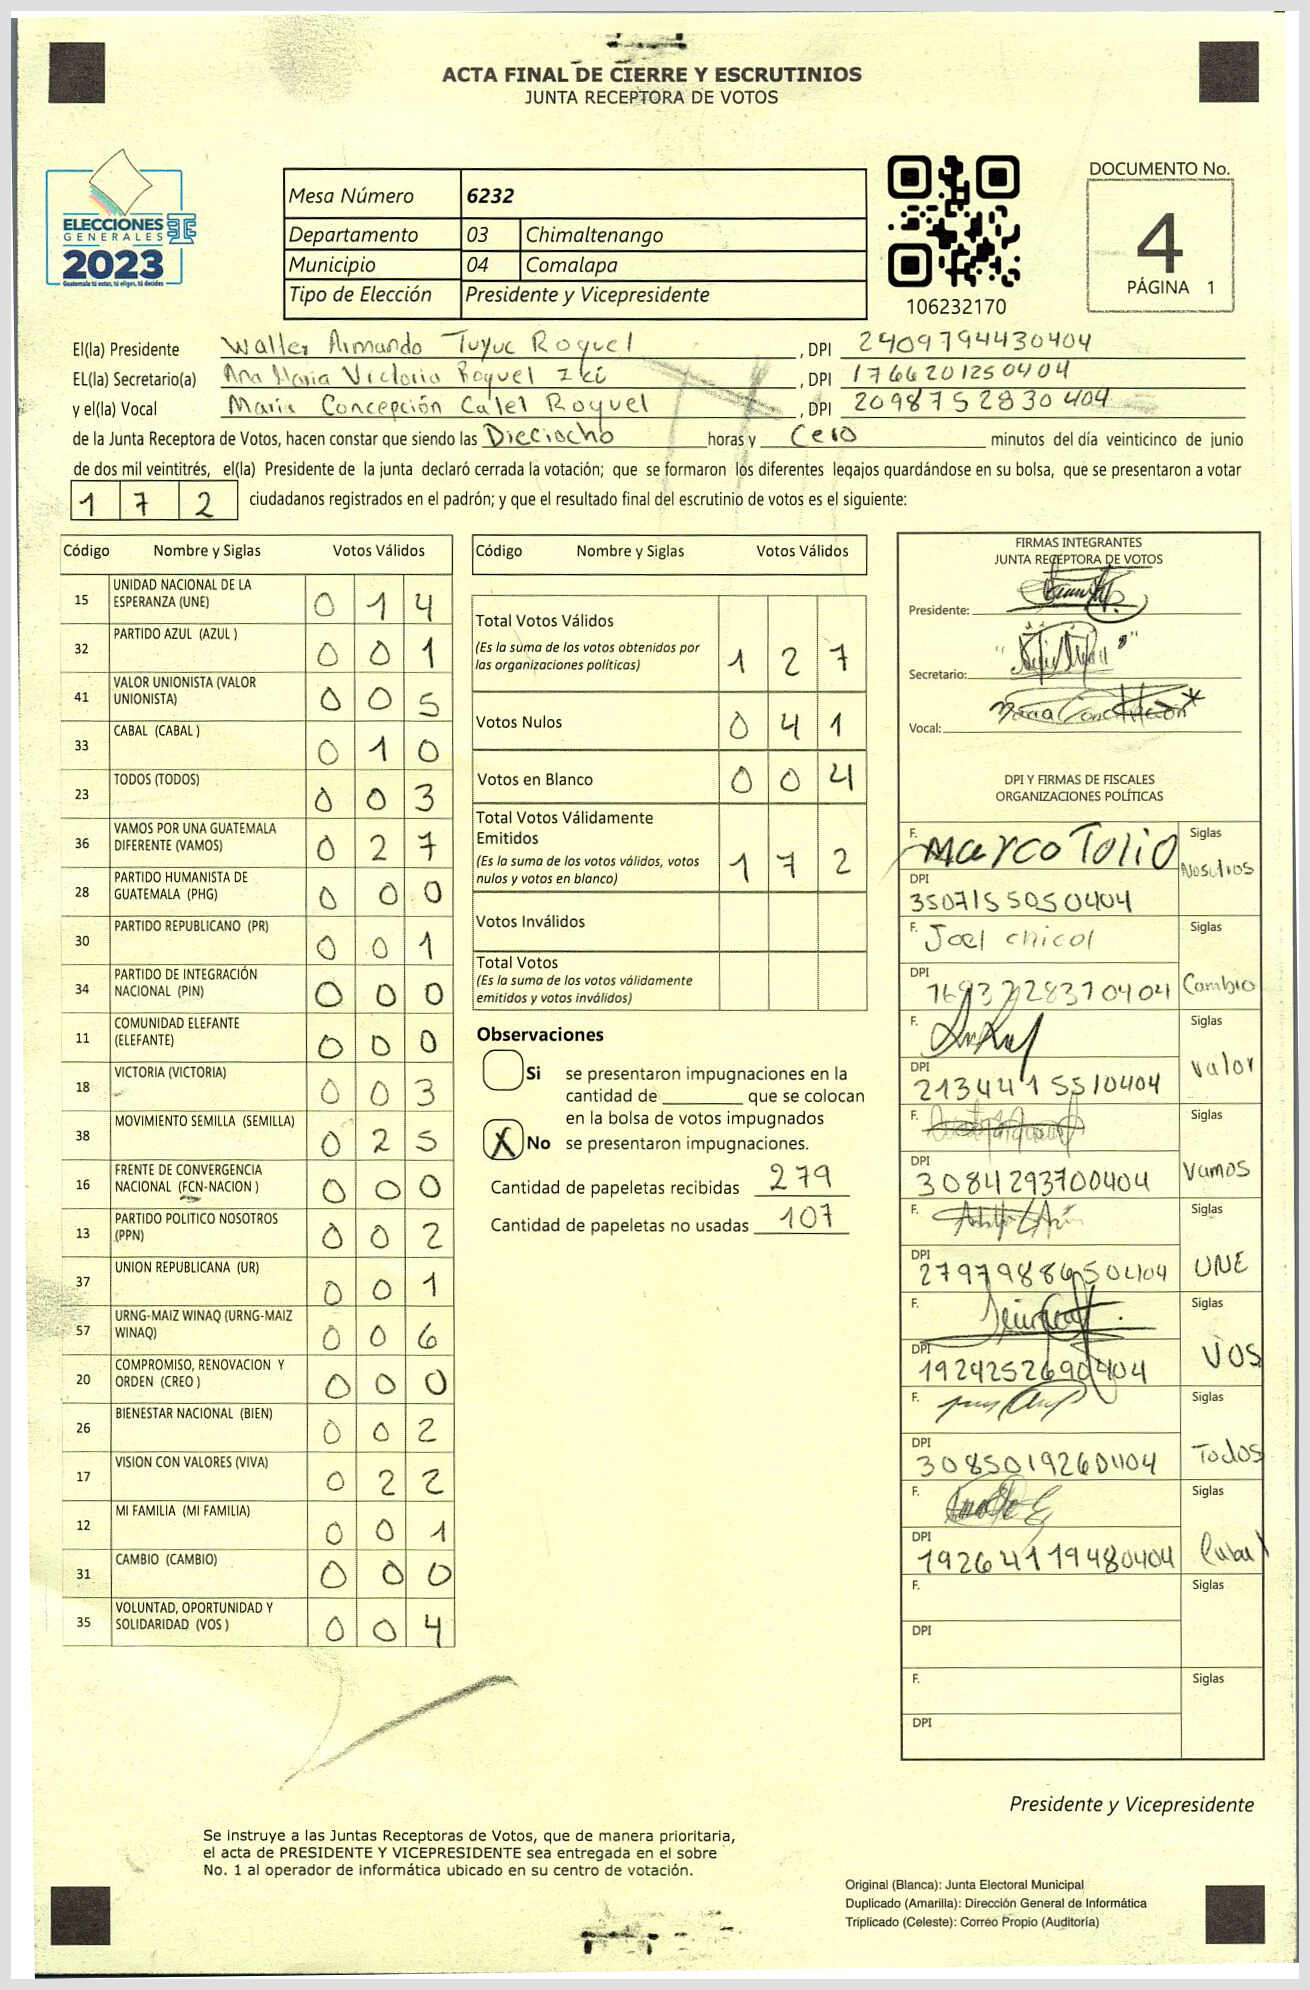 ACTA FINAL DE CIERRE Y ESCRUTINIOS
JUNTA RECEPTORA DE VOTOS
ELECCIONES
GENERALES
2023
Guatemala tú votas, tú eliges, tú decides
Mesa Número 6232
Departamento 03 Chimaltenango
Municipio 04 Comalapa
Tipo de Elección Presidente y Vicepresidente
106232170
DOCUMENTO No.
4
PÁGINA 1
El(la) Presidente Walter Armando Tuyuc Roquel , DPI 2409794430404
EL(la) Secretario(a) Ana Maria Victoria Roquel Iki , DPI 1766201250404
y el(la) Vocal María Concepción Calel Roquel , DPI 2098752830404
de la Junta Receptora de Votos, hacen constar que siendo las Dieciocho horas y Cero minutos del día veinticinco de junio
de dos mil veintitrés, el(la) Presidente de la junta declaró cerrada la votación; que se formaron los diferentes legajos quardándose en su bolsa, que se presentaron a votar
172 ciudadanos registrados en el padrón; y que el resultado final del escrutinio de votos es el siguiente:
Código Nombre y Siglas Votos Válidos
15 UNIDAD NACIONAL DE LA ESPERANZA (UNE) 0 1 4
32 PARTIDO AZUL (AZUL ) 0 0 1
41 VALOR UNIONISTA (VALOR UNIONISTA) 0 0 5
33 CABAL (CABAL ) 0 1 0
23 TODOS (TODOS) 0 0 3
36 VAMOS POR UNA GUATEMALA DIFERENTE (VAMOS) 0 2 7
28 PARTIDO HUMANISTA DE GUATEMALA (PHG) 0 0 0
30 PARTIDO REPUBLICANO (PR) 0 0 1
34 PARTIDO DE INTEGRACIÓN NACIONAL (PIN) 0 0 0
11 COMUNIDAD ELEFANTE (ELEFANTE) 0 0 0
18 VICTORIA (VICTORIA) 0 0 3
38 MOVIMIENTO SEMILLA (SEMILLA) 0 2 5
16 FRENTE DE CONVERGENCIA NACIONAL (FCN-NACION ) 0 0 0
13 PARTIDO POLITICO NOSOTROS (PPN) 0 0 2
37 UNION REPUBLICANA (UR) 0 0 1
57 URNG-MAIZ WINAQ (URNG-MAIZ WINAQ) 0 0 6
20 COMPROMISO, RENOVACION Y ORDEN (CREO ) 0 0 0
26 BIENESTAR NACIONAL (BIEN) 0 0 2
17 VISION CON VALORES (VIVA) 0 2 2
12 MI FAMILIA (MI FAMILIA) 0 0 1
31 CAMBIO (CAMBIO) 0 0 0
35 VOLUNTAD, OPORTUNIDAD Y SOLIDARIDAD (VOS ) 0 0 4
Código Nombre y Siglas Votos Válidos
Total Votos Válidos
(Es la suma de los votos obtenidos por
las organizaciones políticas) 1 2 7
Votos Nulos 0 4 1
Votos en Blanco 0 0 4
Total Votos Válidamente
Emitidos
(Es la suma de los votos válidos, votos
nulos y votos en blanco) 1 7 2
Votos Inválidos
Total Votos
(Es la suma de los votos válidamente
emitidos y votos inválidos)
Observaciones
Si se presentaron impugnaciones en la
cantidad de ________ que se colocan
en la bolsa de votos impugnados
X No se presentaron impugnaciones.
Cantidad de papeletas recibidas 279
Cantidad de papeletas no usadas 107
FIRMAS INTEGRANTES
JUNTA RECEPTORA DE VOTOS
Presidente:
Secretario:
Vocal:
DPI Y FIRMAS DE FISCALES
ORGANIZACIONES POLÍTICAS
F. Marco Tulio Siglas
DPI Nosotros
3507155050404
F. Joel chicol Siglas
DPI Cambio
1693728370404
F. Siglas
DPI Valor
2134415510404
F. Siglas
DPI Vamos
3084293700404
F. Siglas
DPI UNE
2797988650404
F. Siglas
DPI VOS
1924252690404
F. Siglas
DPI Todos
3085019260404
F. Siglas
DPI Cabal
19264119480404
F. Siglas
DPI
F. Siglas
DPI
Presidente y Vicepresidente
Se instruye a las Juntas Receptoras de Votos, que de manera prioritaria,
el acta de PRESIDENTE Y VICEPRESIDENTE sea entregada en el sobre
No. 1 al operador de informática ubicado en su centro de votación.
Original (Blanca): Junta Electoral Municipal
Duplicado (Amarilla): Dirección General de Informática
Triplicado (Celeste): Correo Propio (Auditoría)